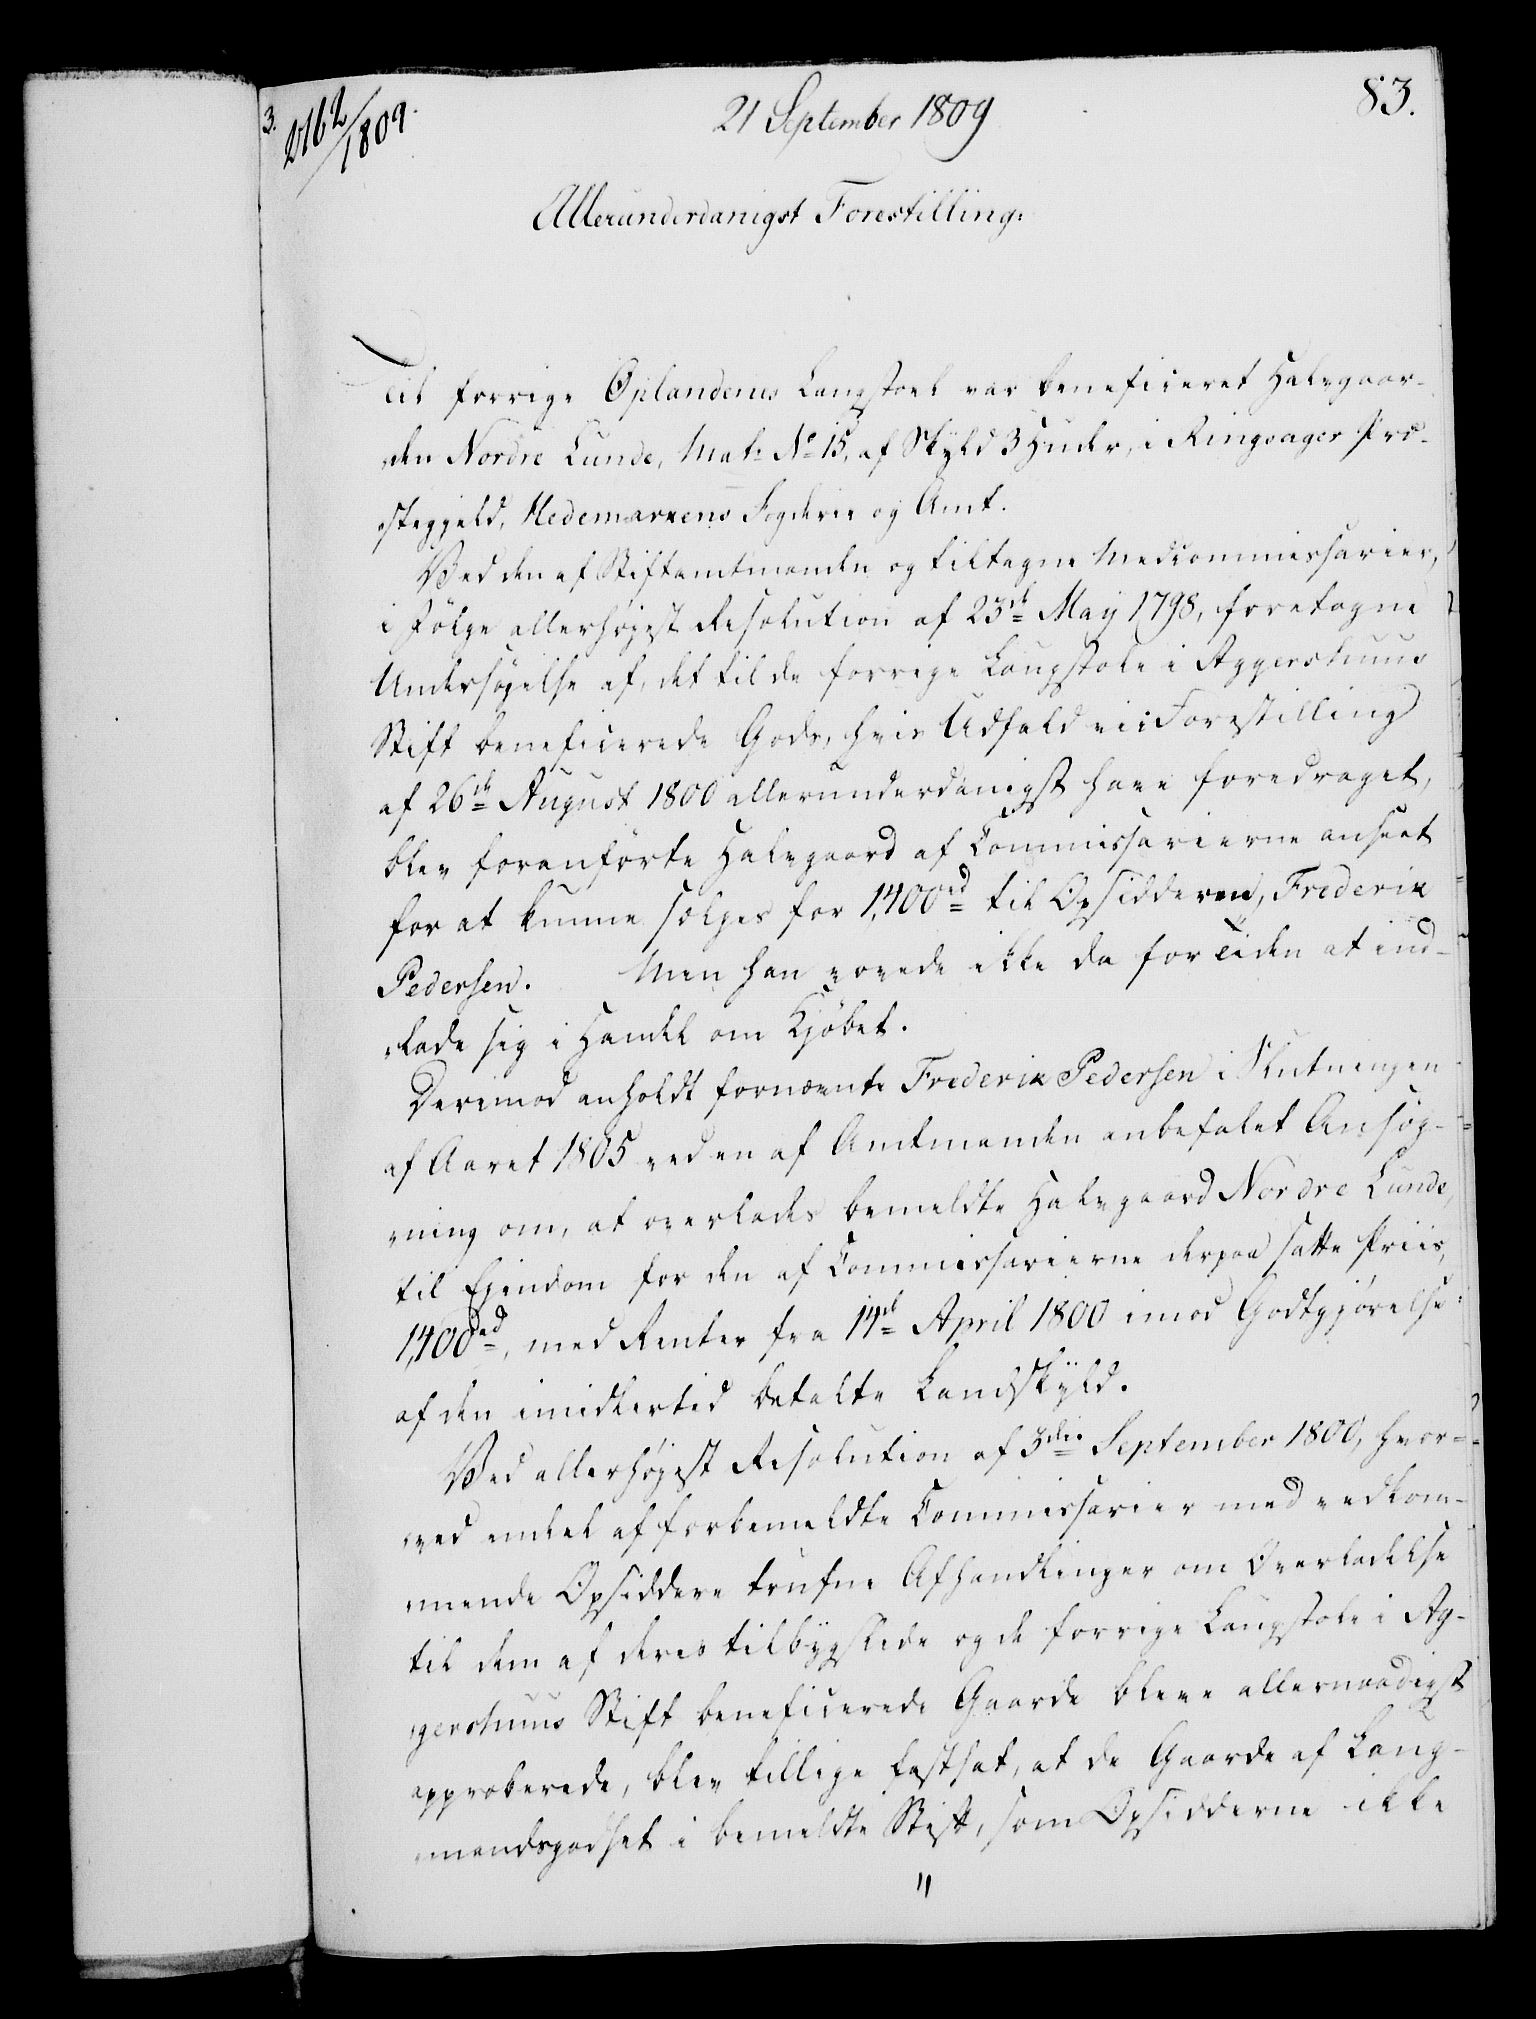 3.
2162/1809.
21 September 1809
83.
Allerunderdanigst Forestilling:
Til forrige Oplandenes Laugstoel var beneficeret Halvgaar-
den Nordre Lunde, Mat: No 15, af Skyld 3 Huder, i Ringsager Præ-
stegjeld, Hedemarkens Fogderie og Amt.
Ved den af Stiftamtmanden og tiltagne Medcommissarier,
i Følge allerhøjest Resolution af 23de May 1798, foretagne
Undersøgelse af, det til de forrige Laugstole i Aggershuus
Stift beneficerede Gods, hvis Udfald vi i Forestilling
af 26de August 1800 allerunderdanigst have foredraget,
blev foranførte Halvgaard af Commissarierne anseet
for at kunne sælges for 1,400rd til Opsidderen, Frederik
Pedersen. Men han vovede ikke da for Tiden at ind-
lade sig i Handel om Kjøbet.
Derimod anholdt fornævnte Frederik Pedersen i Slutningen
af Aaret 1805 ved en af Amtmanden anbefalet Ansøg-
ning om, at overlades bemeldte Halvgaard Nordre Lunde,
til Ejendom for den af Commissarierne derpaa satte Priis,
1,400rd, med Renter fra 14de April 1800 imod Godtgjørelse
af den imidlertid betalte Landskyld.
Ved allerhøjest Resolution af 3die September 1800, hvor-
ved endeel af forbemeldte Commissarier med vedkom-
mende Opsiddere trufne Afhandlinger om Overladelse
til dem af deres tilbygslede og de forrige Laugstole i Ag-
gershuus Stift beneficerede Gaarde bleve allernaadigst
approberede, blev tillige fastsat, at de Gaarde af Laug-
mandsgodset i bemeldte Stift, som Opsidderne ikke
"